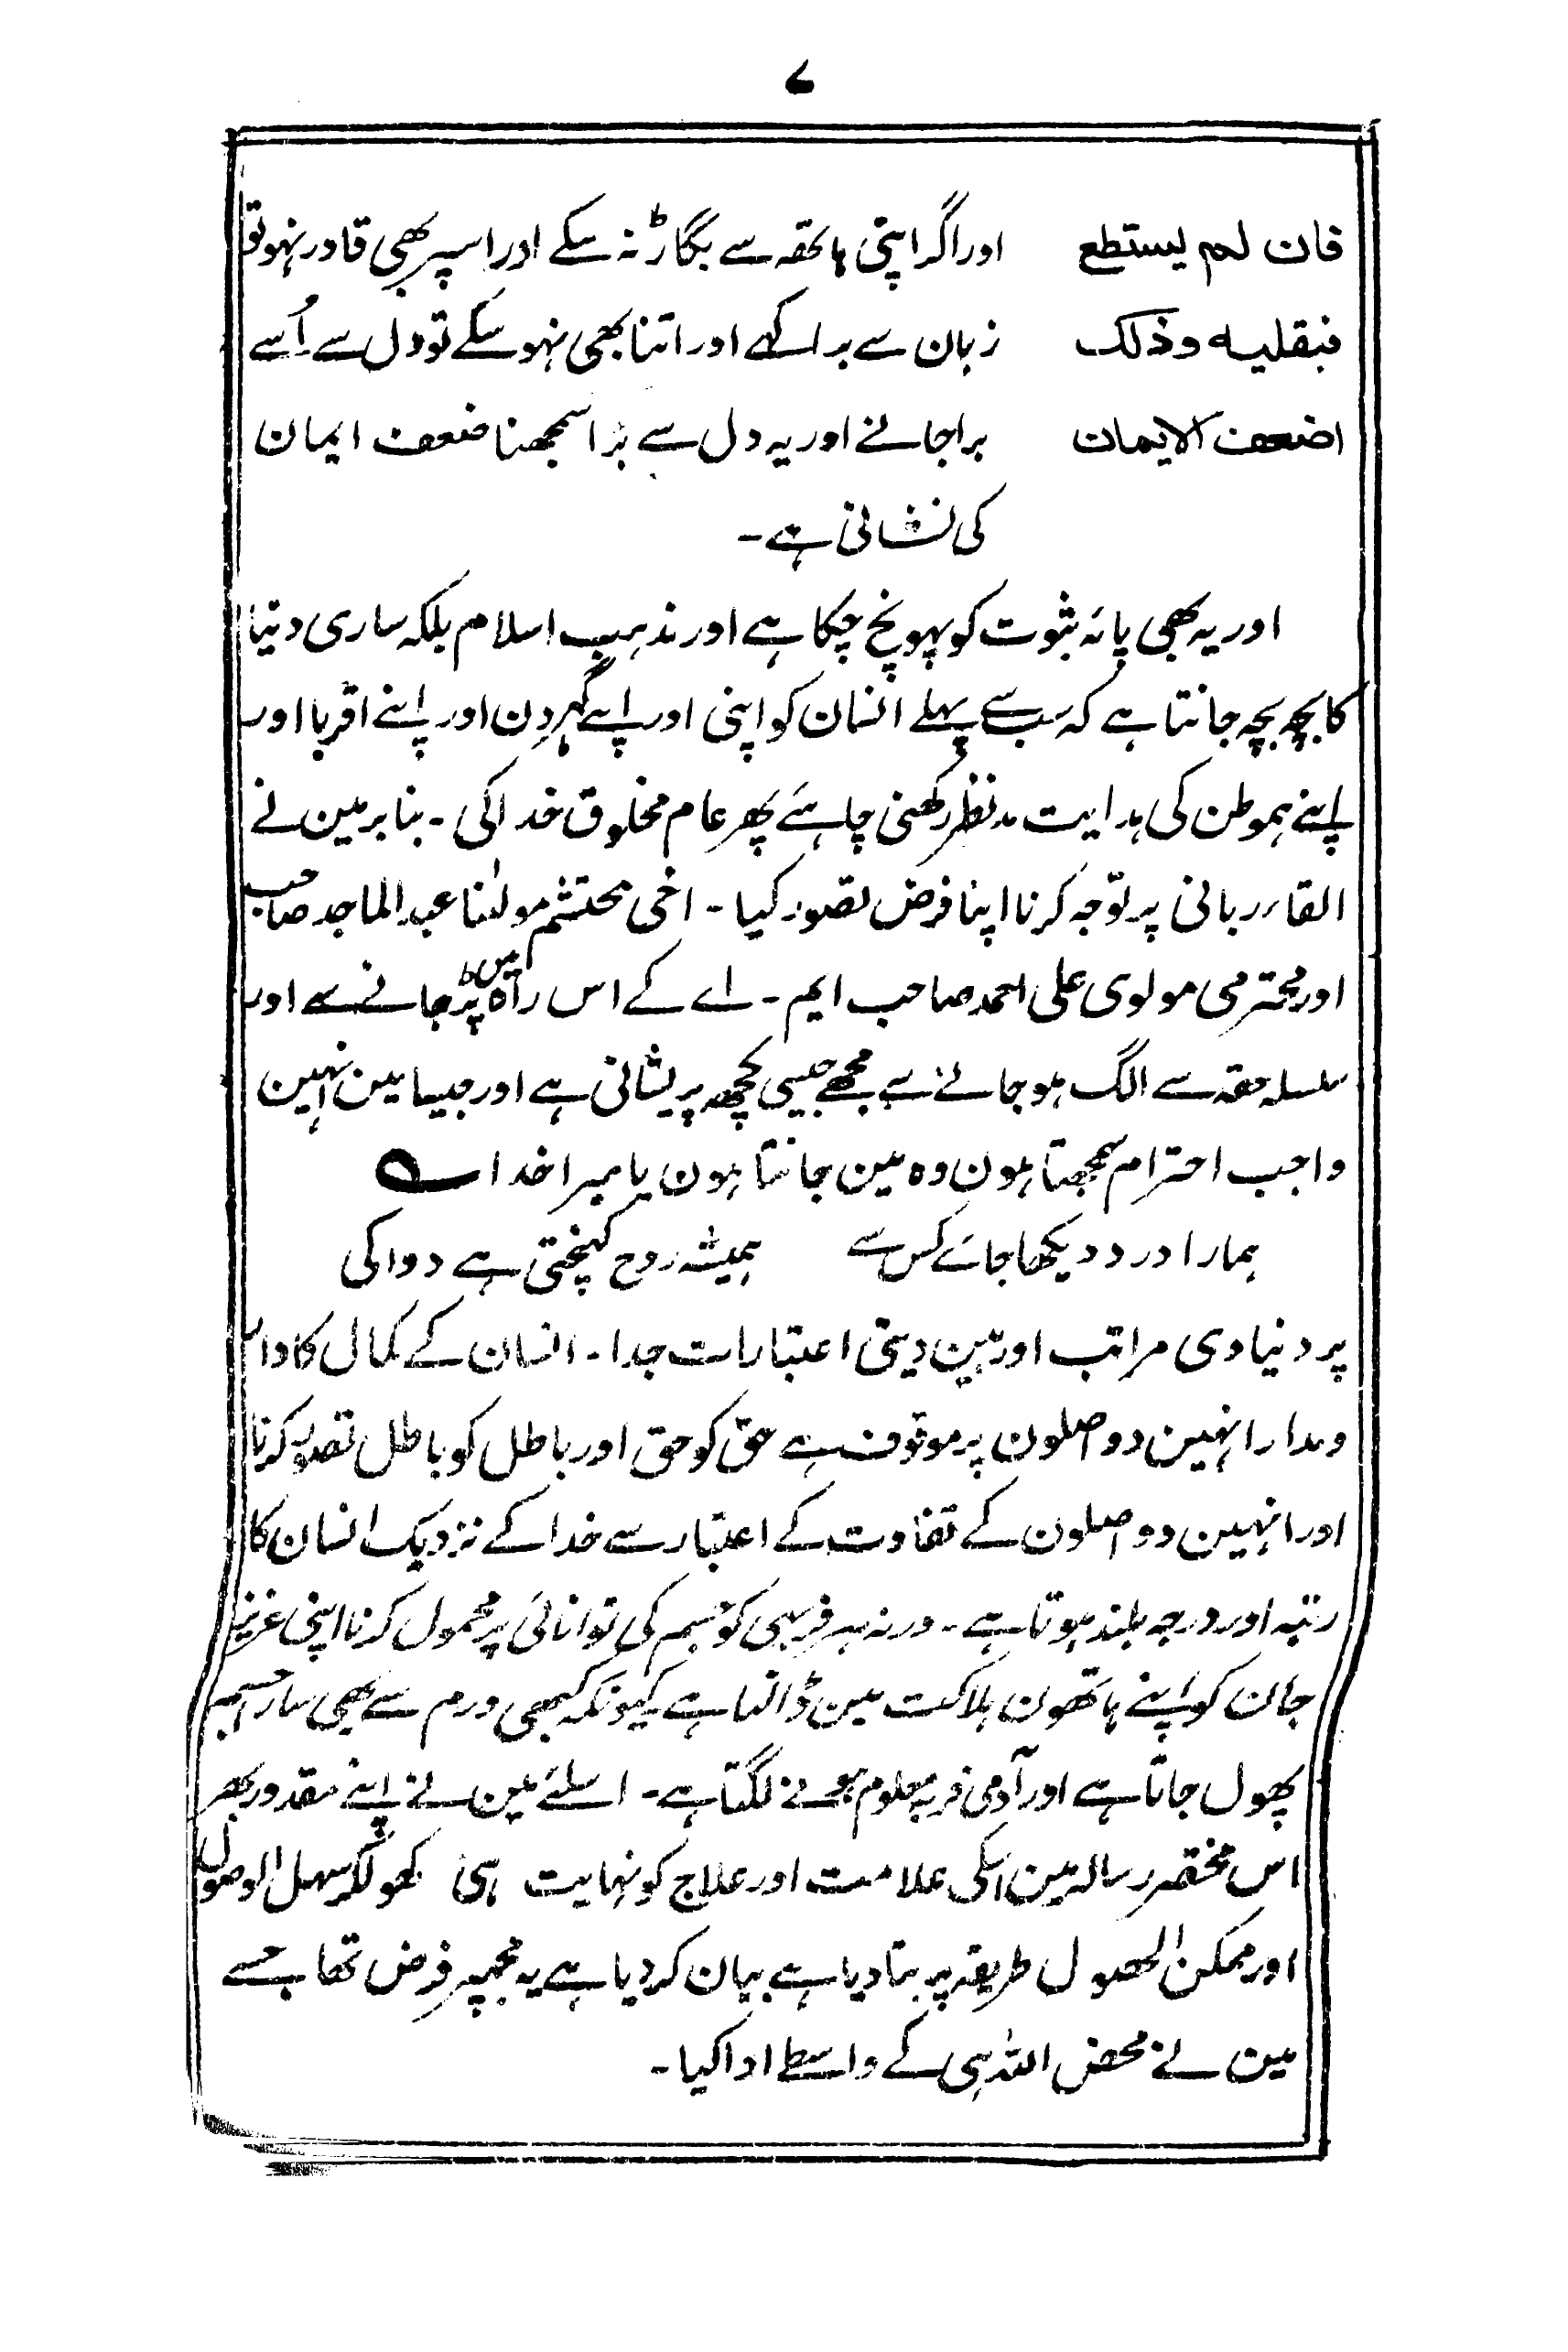 ۷
فان لم یستطع اور اگر اپنی ہاتھ سے بگاڑ نہ سکے اور اسپر بھی قادر نہو تو
فبقلبہ وذلک زبان سے برا کہے اور اتنا بھی نہو سکے تو دل سے اُسے
اضعف الایمان برا جانے اور یہ دل سے برا سمجھنا ضعف ایمان
کی نشانی ہے۔
اور یہ بھی پائہ ثبوت کو پہونچ چکا ہے اور مذہب اسلام بلکہ ساری دنیا
کا بچہ بچہ جانتا ہے کہ سب سے پہلے انسان کو اپنی اور اپنے گہر دِن اور اپنے اقربا اور
اپنے ہموطن کی ہدایت مدنظر رکھنی چاہئے پھر عام مخلوق خدا کی۔ بنا بر مین نے
القاء ربانی پر توجہ کرنا اپنا فرض تصور کیا۔ اخی محتشم مولٰنا عبد الماجد صاحب
اور محترمی مولوی علی احمد صاحب ایم۔ اے کے اس راہ میں پڑ جانے سے اور
سلسلہ حقہ سے الگ ہو جانے سے مجھے جیسی کچھ پریشانی ہے اور جیسا مین انہین
واجب احترام سمجھتا ہون وہ مین جانتا ہون یا میرا خدا ؎
ہمارا درد دیکھا جائے کس سے ہمیشہ روح کہنچتی ہے دوا کی
پر دنیاوی مراتب اور ہین دینی اعتبارات جدا۔ انسان کے کمال کا دار
ومدار انہین دو اصلون پر موقوف ہے حق کو حق اور باطل کو باطل تصور کرنا
اور انہین دو اصلون کے تفاوت کے اعتبار سے خدا کے نزدیک انسان کا
رتبہ اور درجہ بلند ہوتا ہے۔ ورنہ ہر فربہی کو جسم کی توانائی پر محمول کرنا اپنی عزیز
جان کو اپنے ہاتھون ہلاکت مین ڈالنا ہے کیونکہ کبھی ورم سے بھی سارا جسم
پھول جاتا ہے اور آدمی فربہ معلوم ہونے لگتا ہے۔ اسلئے مین نے اپنے مقدور بھر
اس مختصر رسالہ مین اسکی علامت اور علاج کو نہایت ہی کھولکر سہل الوصول
اور ممکن الحصول طریقہ پر بتا دیا ہے بیان کر دیا ہے یہ مجہپر فرض تھا جسے
مین نے محض اللہ ہی کے واسطے ادا کیا۔